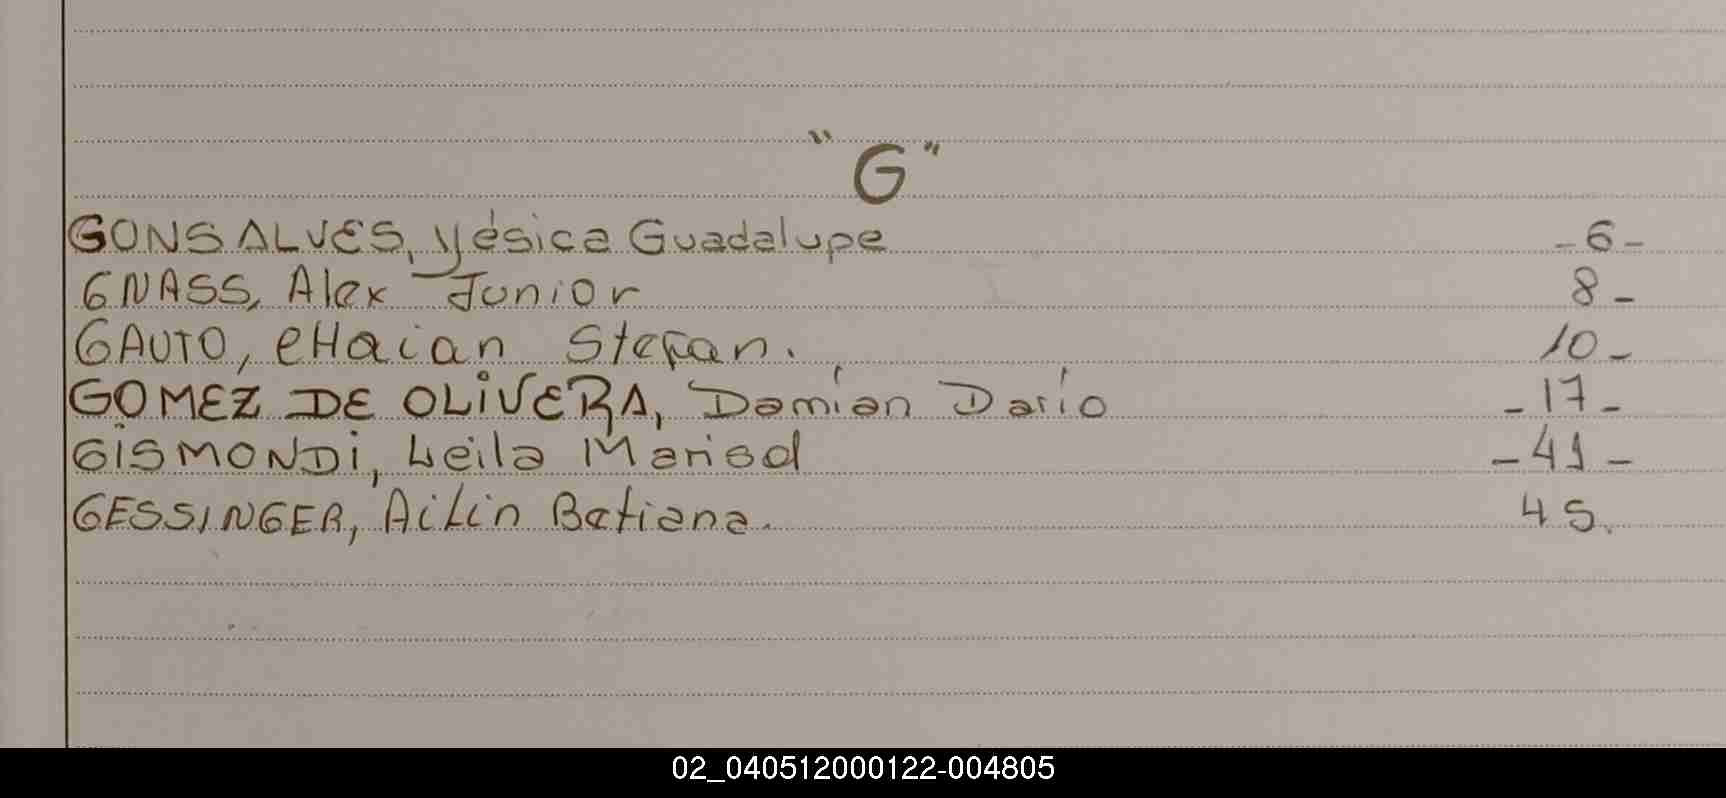 "G"
GONSALVES, Yésica Guadalupe -6-
GNASS, Alex Junior 8-
GAUTO, eHaian Stefan. 10-
GOMEZ DE OLIVERA, Damián Darío -17-
GISMONDI, Leila Marisol -41-
GESSINGER, Ailin Betiana. 45.
02_040512000122-004805